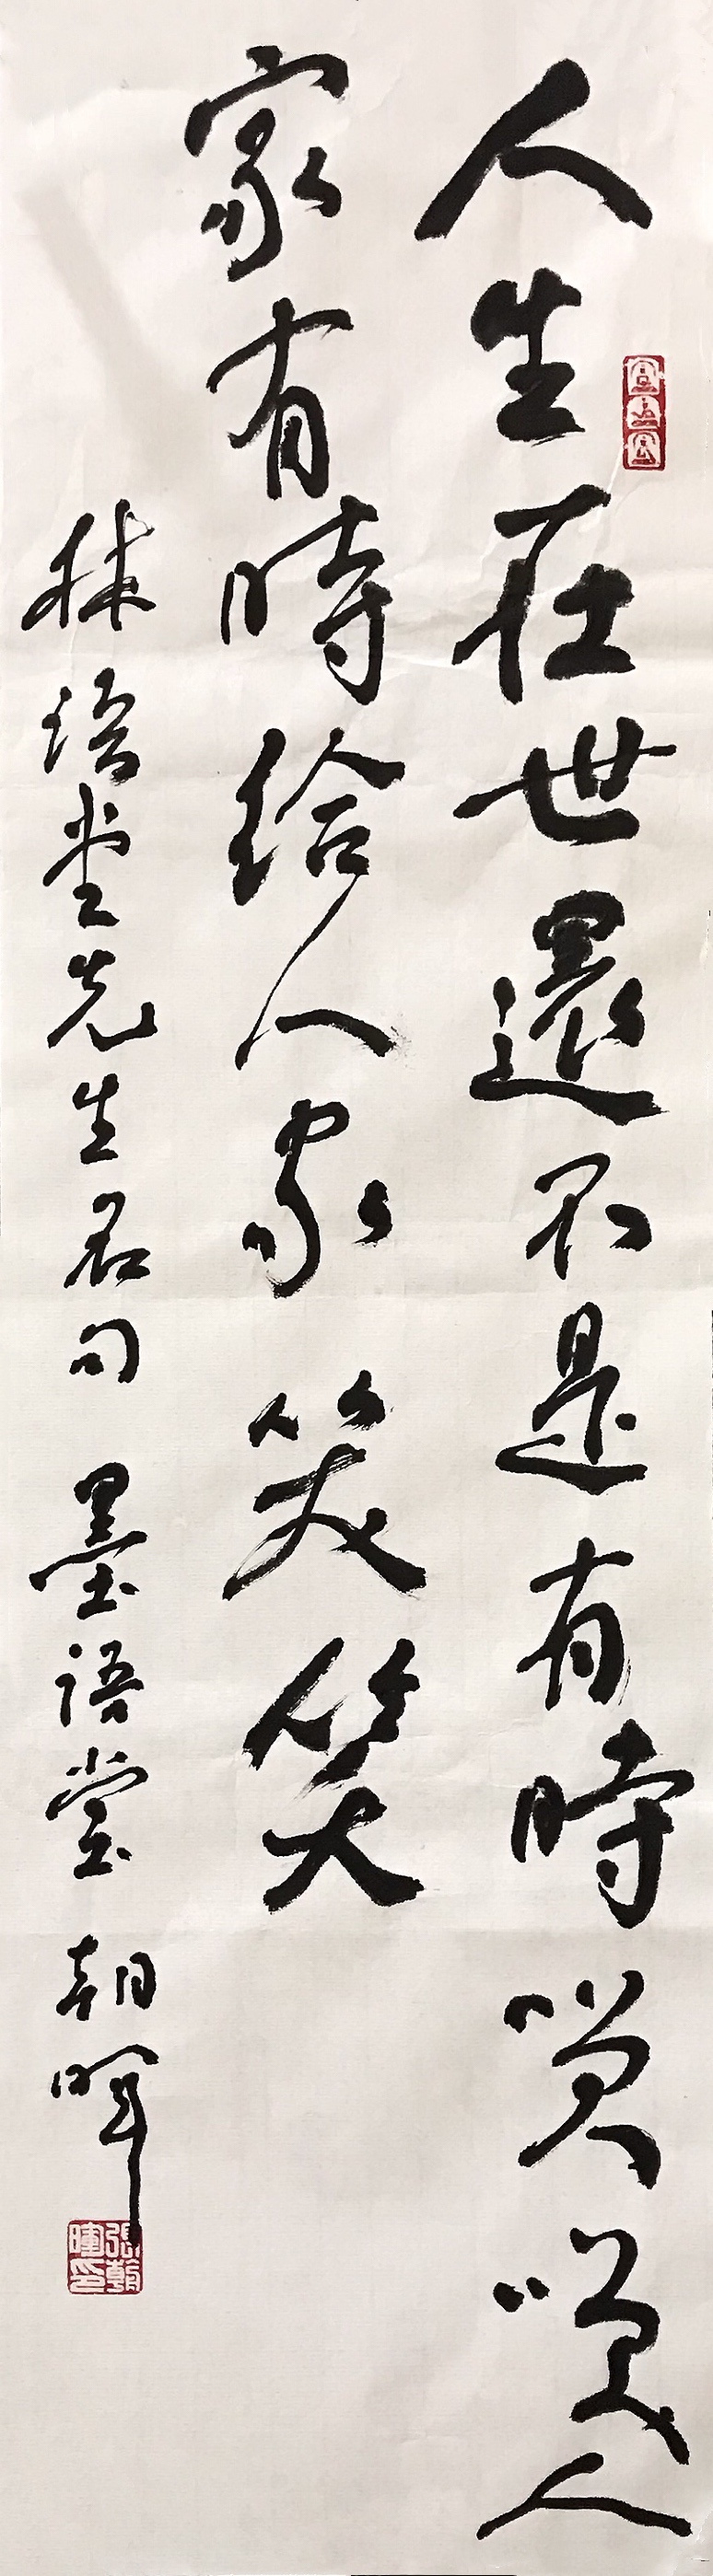 人生在世還不是有時笑笑人
家有時給人家笑笑
林語堂先生名句 墨語堂 朝暉
張朝暉印